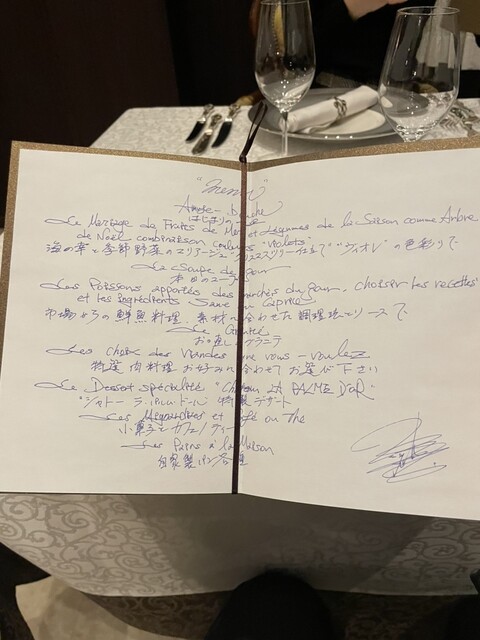 "Menu"
Amuse-Bouche
はじまりの一皿
Le Mariage de Fruits de Mer et Légumes de la Saison comme Arbre
de Noël combinaison couleurs "Violets"
海の幸と季節野菜のマリアージュ クリスマスツリー仕立て "ヴィオレ" の色彩りで
La Soupe de Jour
本日のスープ
Les Poissons apportés des marchés du jour, choisir les recettes
et les ingrédients Sans Caprice
市場からの鮮魚料理 素材に合わせた調理法とソースで
Le Granité
お口直しのグラニテ
Les choix des Viandes que vous-voulez
特選肉料理 お好みに合わせてお選び下さい
Le Dessert spécialité "Chateau LA PALME D'OR"
"シャトー ラ・パルム・ドール" 特製デザート
Les Mignardises et Café ou Thé
小菓子とカフェ/ティー
Les Pains à la Maison
自家製パン各種